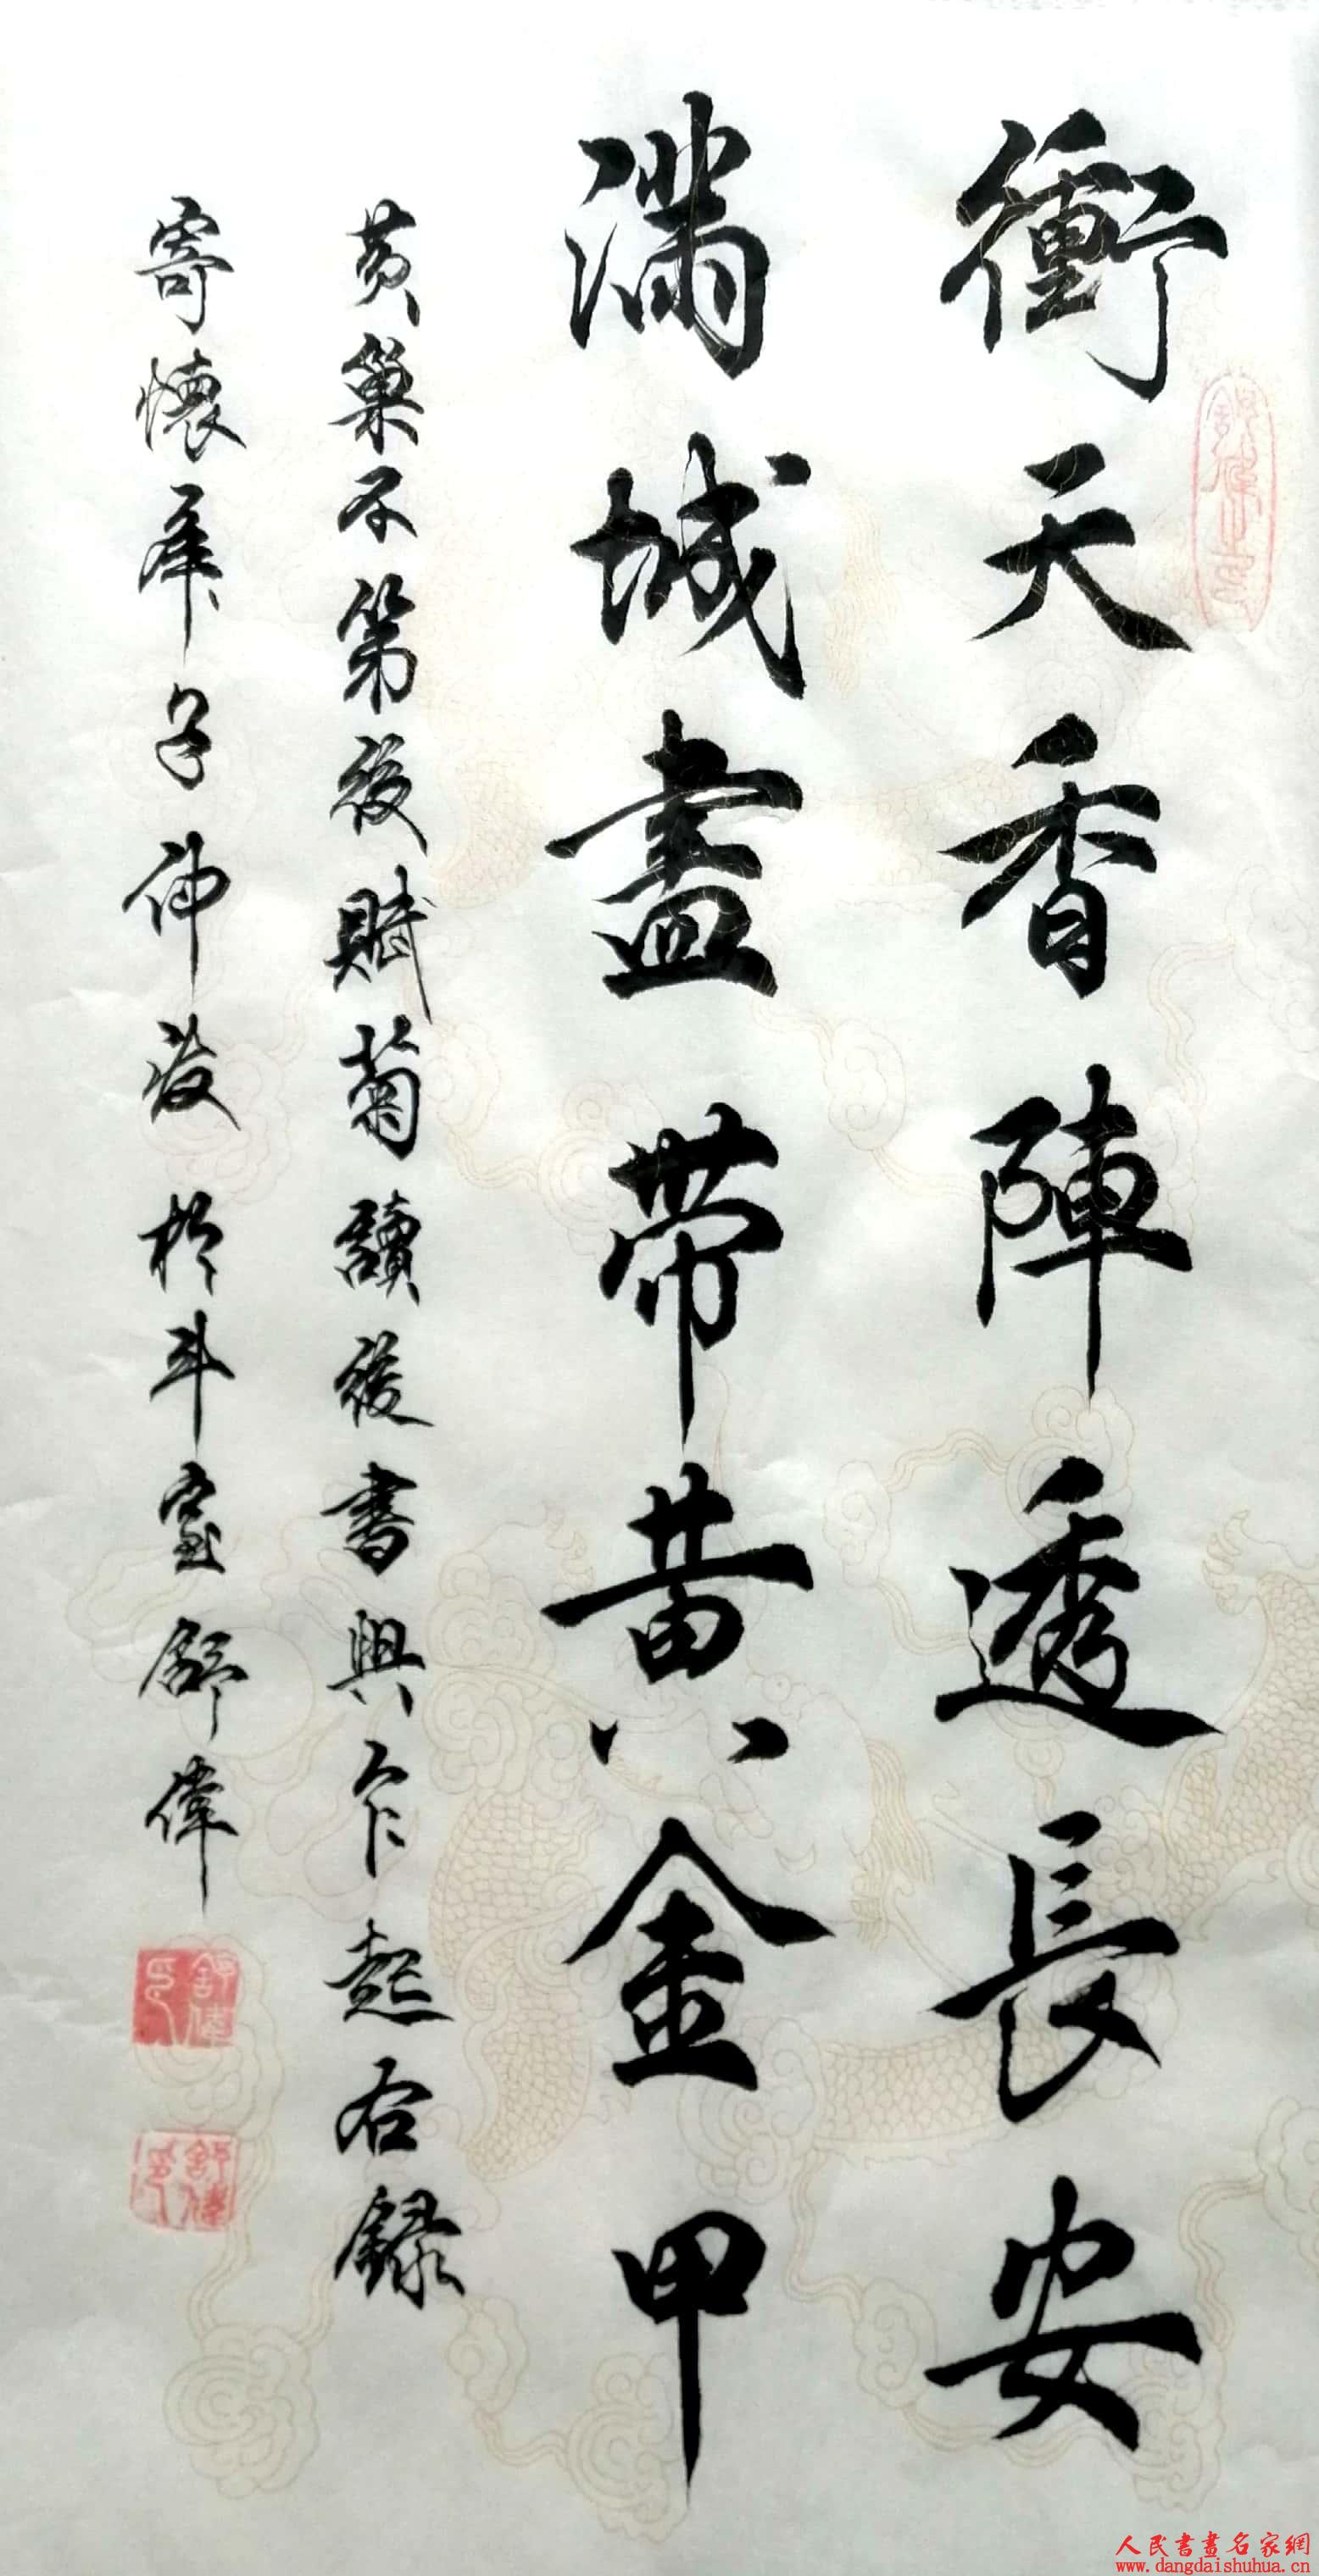 衝天香陣透長安
滿城盡帶黃金甲
黃巢不第後賦菊讀後書興乍起右錄
寄懷庚子仲夏於斗室舒偉
舒偉印
舒偉印
人民書畫名家網
www.dangdaishuhua.cn